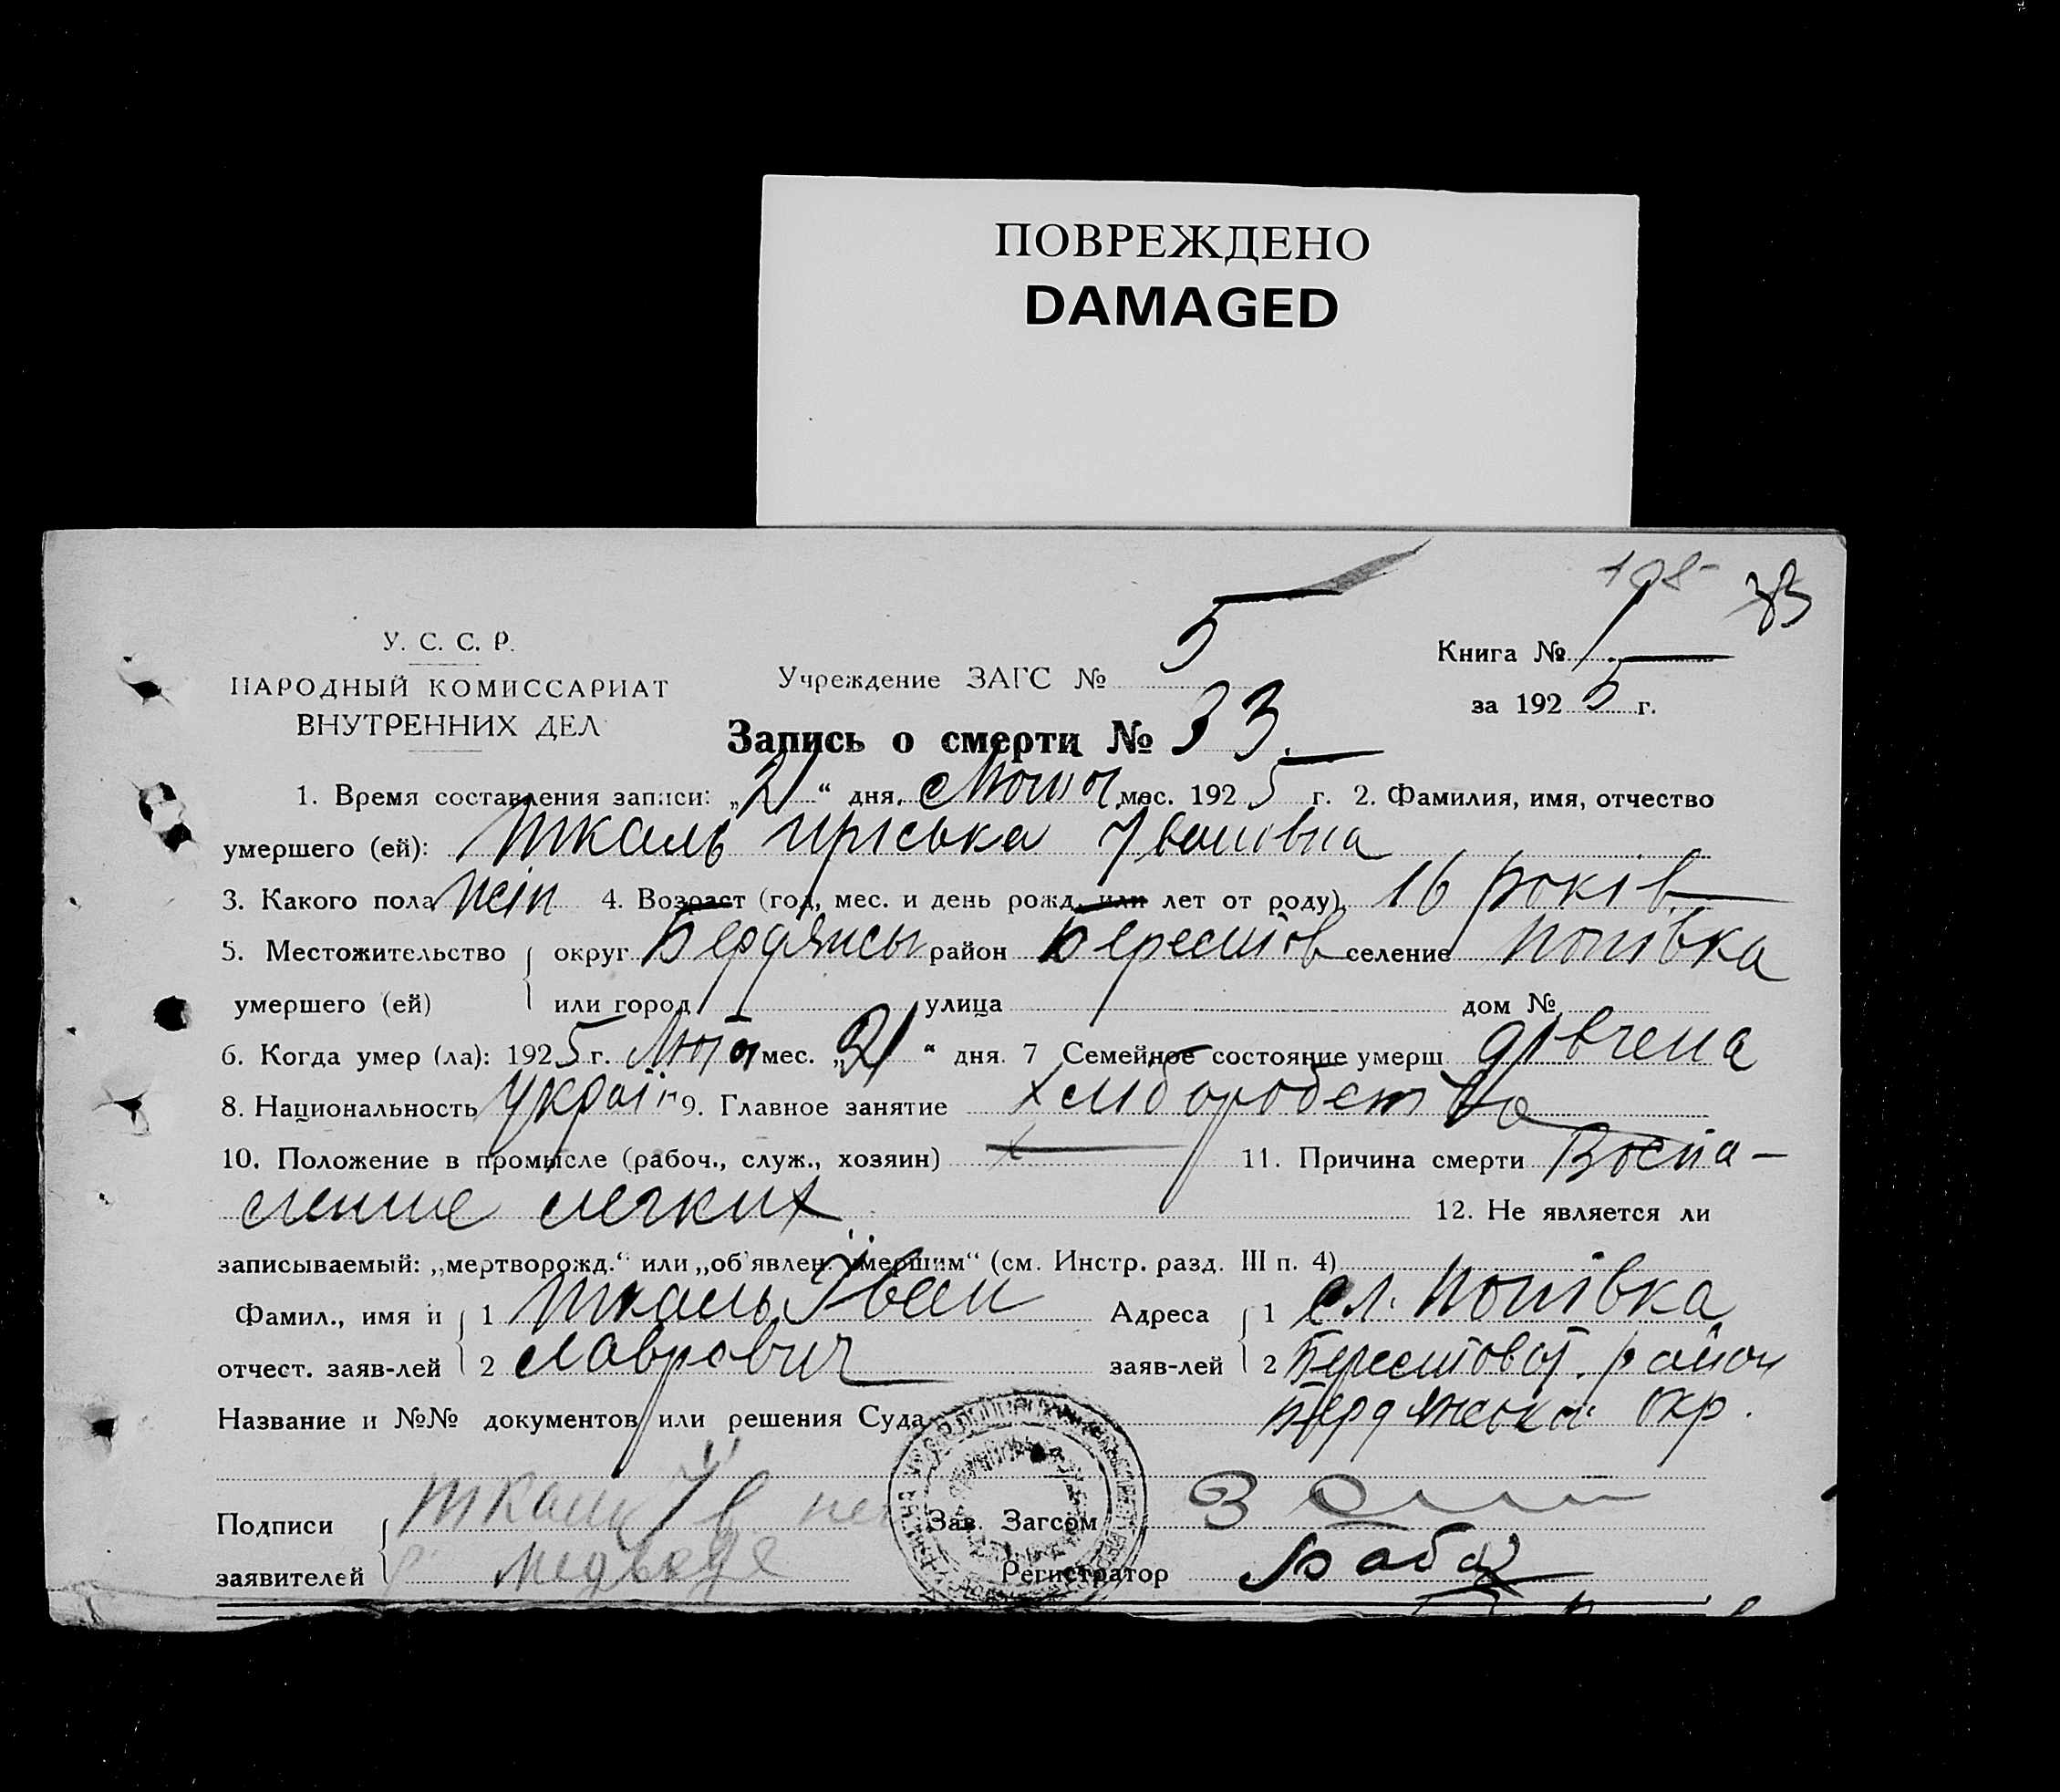 ПОВРЕЖДЕНО
DAMAGED
198 33
У. С. С. Р.
НАРОДНЫЙ КОМИССАРИАТ
ВНУТРЕННИХ ДЕЛ
Учреждение ЗАГС № 5
Книга № 1
за 1925 г.
Запись о смерти № 33.
1. Время составления записи: „21“ дня. Лютог мес. 1925 г. 2. Фамилия, имя, отчество
умершего (ей): Ткаль Пріська Івановна
3. Какого пола 4. Возраст (год, мес. и день рожд. или лет от роду) 16 років
5. Местожительство округ Бердянськ район Берестов селение Попівка
умершего (ей) или город улица дом №
6. Когда умер (ла): 1925 г. Лютог мес. „21“ дня. 7 Семейное состояние умерш. дівчена
8. Национальность україн 9. Главное занятие хліборобство
10. Положение в промысле (рабоч., служ., хозяин) 11. Причина смерти Воспа–
ление легких. 12. Не является ли
записываемый: „мертворожд.“ или „об'явлен. умершим“ (см. Инстр. разд. III п. 4)
Фамил., имя и 1 Ткаль Іван Адреса 1 сл. Попівка
отчест. заяв-лей 2 Лаврович заяв-лей 2 Берестовог. район
Название и №№ документов или решения Суда Бердянської Окр.
Подписи Ткаль Ів Зав. Загсом
заявителей Медведе Регистратор